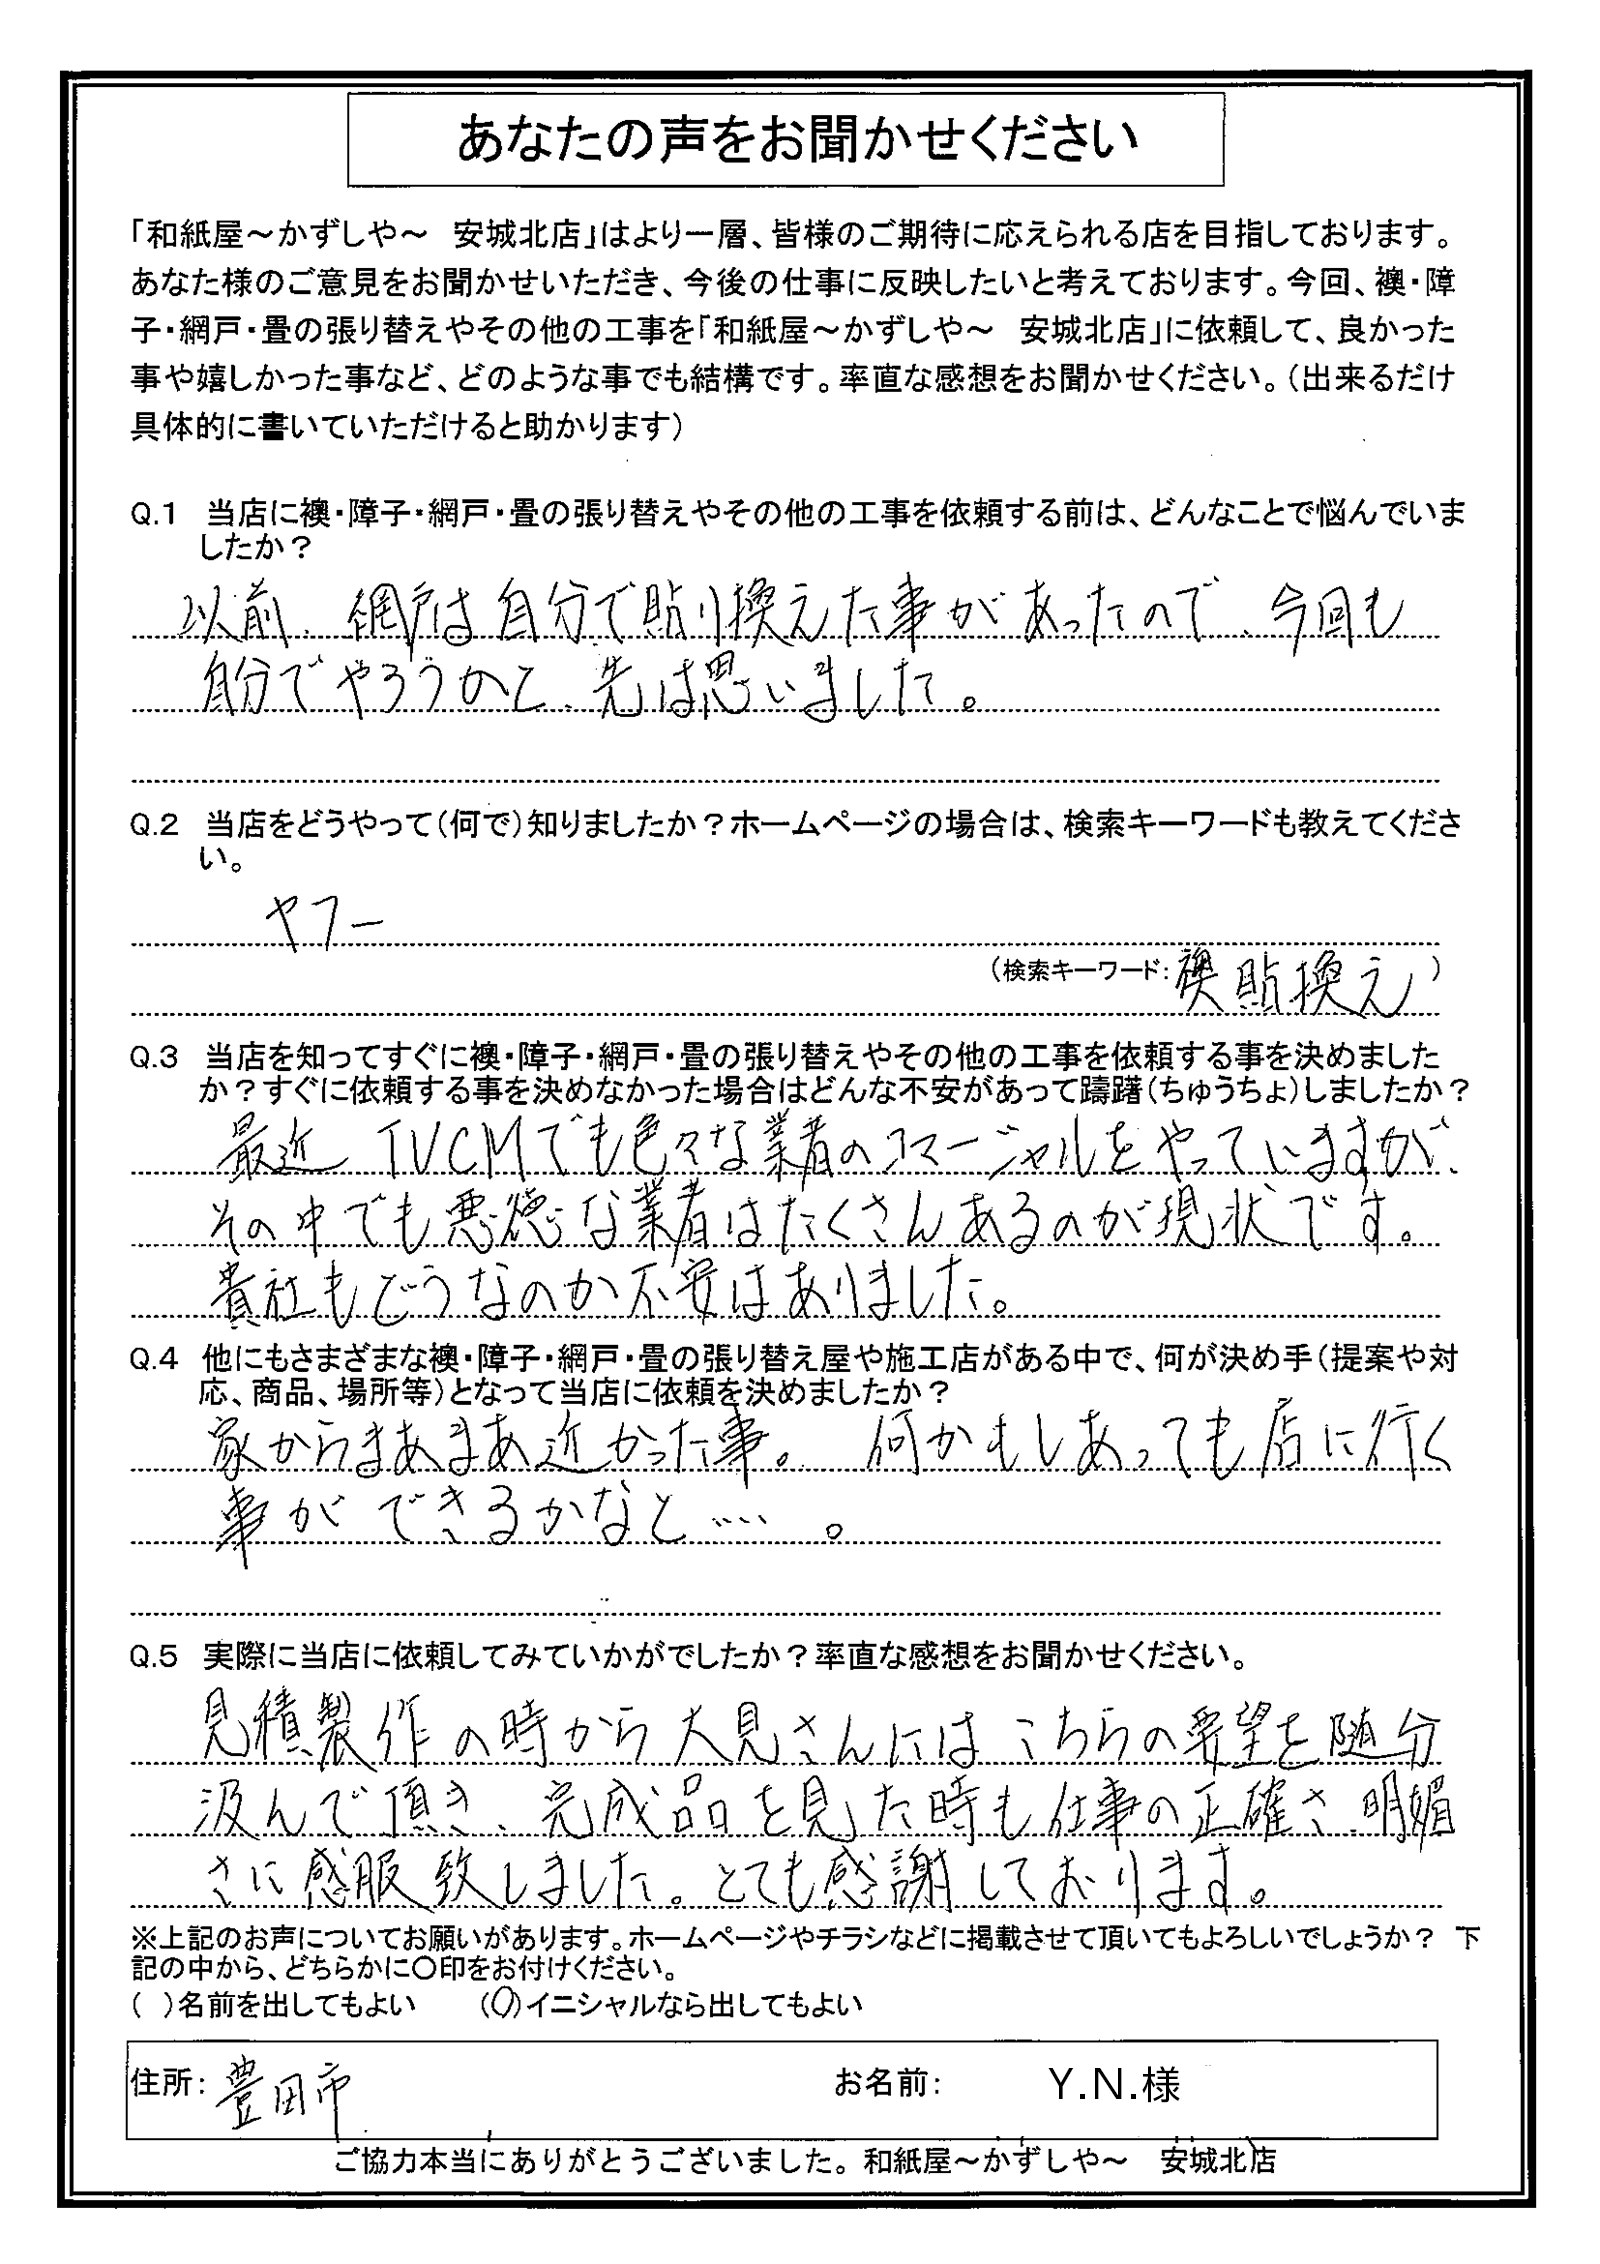 あなたの声をお聞かせください
「和紙屋～かずしや～　安城北店」はより一層、皆様のご期待に応えられる店を目指しております。
あなた様のご意見をお聞かせいただき、今後の仕事に反映したいと考えております。今回、襖・障
子・網戸・畳の張り替えやその他の工事を「和紙屋～かずしや～　安城北店」に依頼して、良かった
事や嬉しかった事など、どのような事でも結構です。率直な感想をお聞かせください。（出来るだけ
具体的に書いていただけると助かります）
Q.1　当店に襖・障子・網戸・畳の張り替えやその他の工事を依頼する前は、どんなことで悩んでいま
したか？
以前、網戸は自分で貼り換えた事があったので、今回も
自分でやろうかと、先は思いました。
Q.2　当店をどうやって（何で）知りましたか？ホームページの場合は、検索キーワードも教えてくださ
い。
ヤフー
（検索キーワード：襖貼換え）
Q.3　当店を知ってすぐに襖・障子・網戸・畳の張り替えやその他の工事を依頼する事を決めました
か？すぐに依頼する事を決めなかった場合はどんな不安があって躊躇（ちゅうちょ）しましたか？
最近 TVCMでも色々な業者のコマーシャルをやっていますが、
その中でも悪徳な業者はたくさんあるのが現状です。
貴社もどうなのか不安はありました。
Q.4　他にもさまざまな襖・障子・網戸・畳の張り替え屋や施工店がある中で、何が決め手（提案や対
応、商品、場所等）となって当店に依頼を決めましたか？
家からまあまあ近かった事。 何かもしあっても店に行く
事ができるかなと……。
Q.5　実際に当店に依頼してみていかがでしたか？率直な感想をお聞かせください。
見積製作の時から大見さんにはこちらの要望を随分
汲んで頂き、完成品を見た時も仕事の正確さ、明媚
さに感服致しました。とても感謝しております。
※上記のお声についてお願いがあります。ホームページやチラシなどに掲載させて頂いてもよろしいでしょうか？　下
記の中から、どちらかに〇印をお付けください。
（　）名前を出してもよい　　（〇）イニシャルなら出してもよい
住所：豊田市　お名前：　Y.N.様
ご協力本当にありがとうございました。和紙屋～かずしや～　安城北店